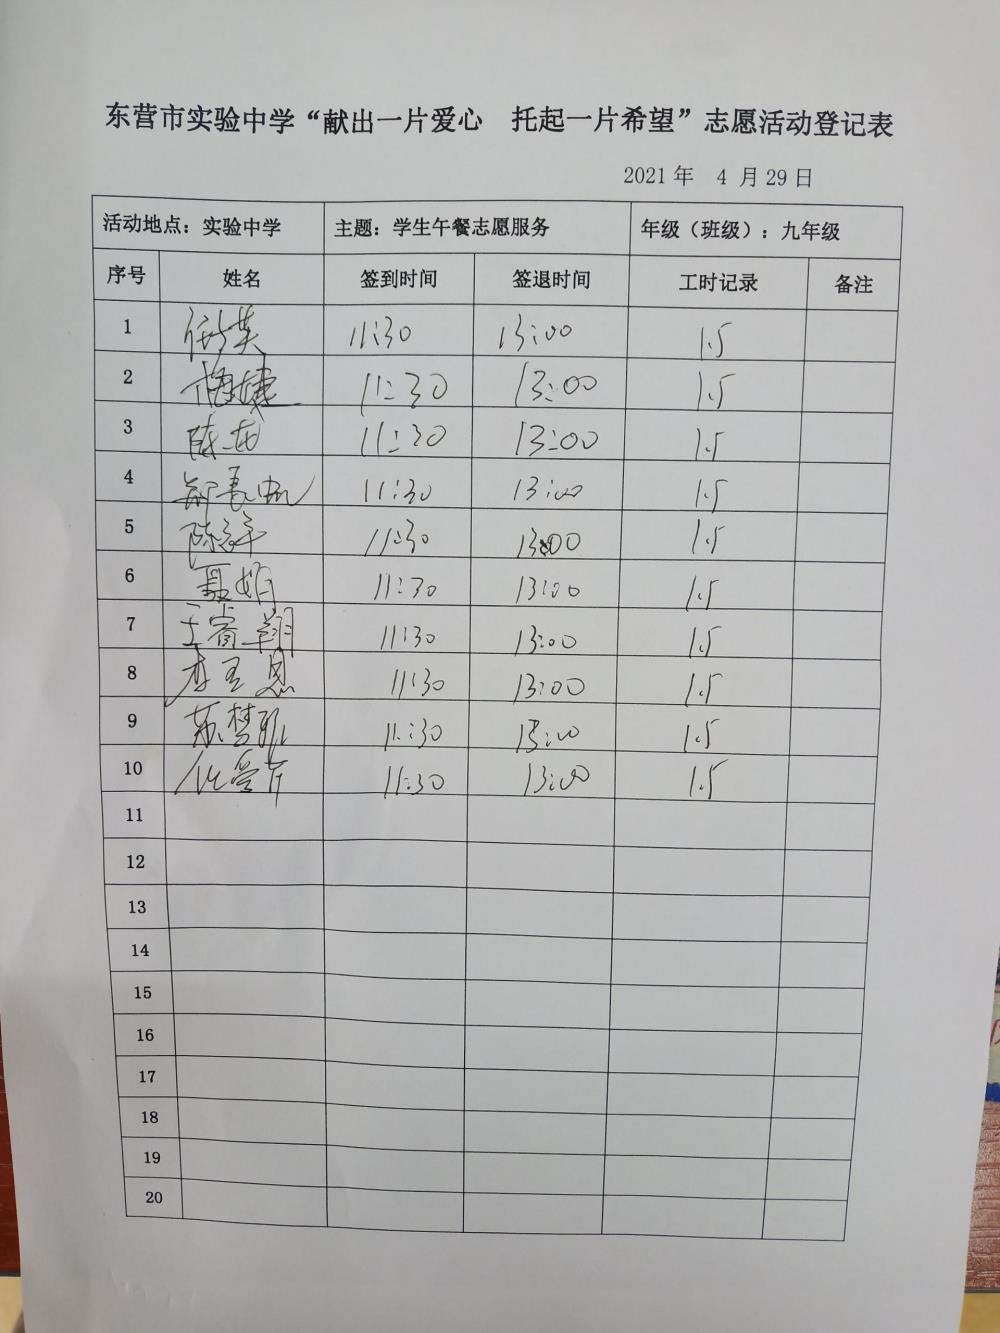 东营市实验中学“献出一片爱心 托起一片希望”志愿活动登记表
2021年 4 月29日
活动地点：实验中学 主题：学生午餐志愿服务 年级（班级）：九年级
序号 姓名 签到时间 签退时间 工时记录 备注
1 11:30 13:00 1.5
2 11:30 13:00 1.5
3 11:30 13:00 1.5
4 11:30 13:00 1.5
5 11:30 13:00 1.5
6 聂娟 11:30 13:00 1.5
7 王睿翔 11:30 13:00 1.5
8 11:30 13:00 1.5
9 苏梦雅 11:30 13:00 1.5
10 11:30 13:00 1.5
11
12
13
14
15
16
17
18
19
20